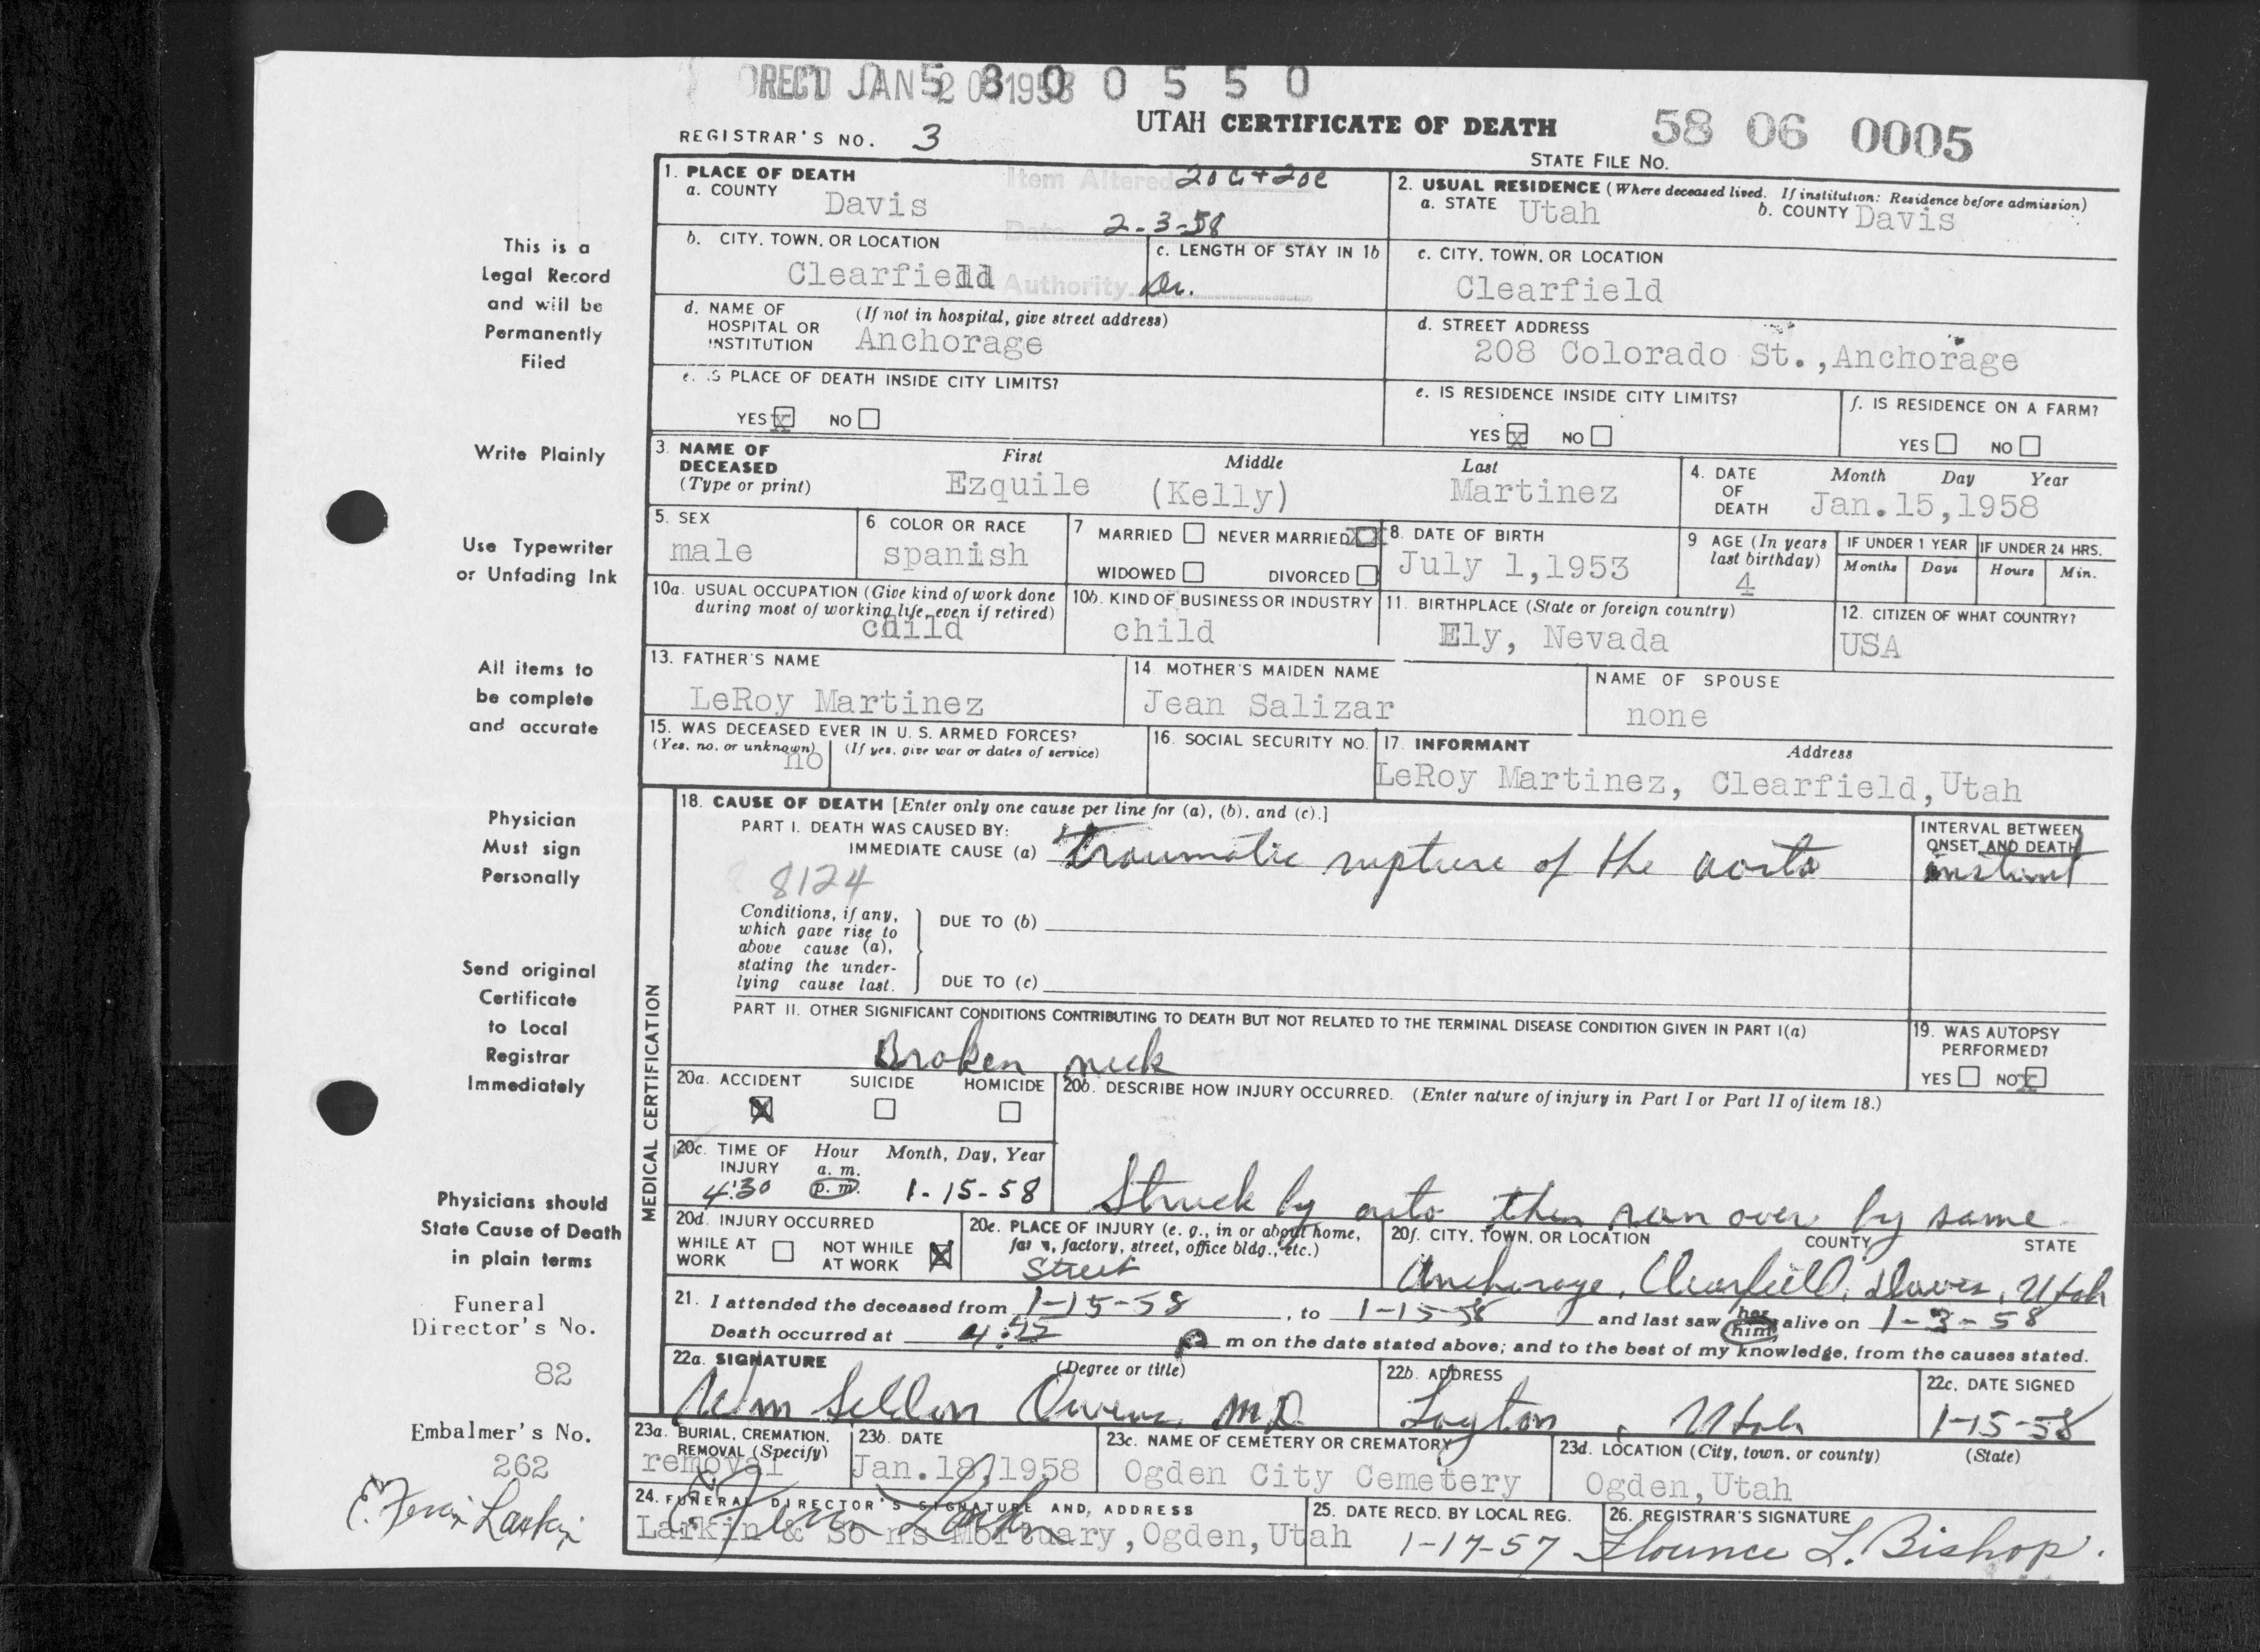 REC'D JAN 20 1958
5 8 0 0 5 5 0
UTAH CERTIFICATE OF DEATH
58 06 0005
REGISTRAR'S NO. 3
STATE FILE NO.
This is a
Legal Record
and will be
Permanently
Filed
Write Plainly
Use Typewriter
or Unfading Ink
All items to
be complete
and accurate
Physician
Must sign
Personally
Send original
Certificate
to Local
Registrar
Immediately
Physicians should
State Cause of Death
in plain terms
Funeral
Director's No.
82
Embalmer's No.
262
E. Ferrin Larkin
1. PLACE OF DEATH
a. COUNTY
Davis
Item Altered 20c+20e
Date 2-3-58
Authority Dr.
2. USUAL RESIDENCE (Where deceased lived. If institution: Residence before admission)
a. STATE Utah b. COUNTY Davis
b. CITY, TOWN, OR LOCATION
Clearfield
c. LENGTH OF STAY IN 1b
c. CITY, TOWN, OR LOCATION
Clearfield
d. NAME OF HOSPITAL OR INSTITUTION (If not in hospital, give street address)
Anchorage
d. STREET ADDRESS
208 Colorado St., Anchorage
e. IS PLACE OF DEATH INSIDE CITY LIMITS?
YES X NO
e. IS RESIDENCE INSIDE CITY LIMITS?
YES X NO
f. IS RESIDENCE ON A FARM?
YES NO
3. NAME OF DECEASED (Type or print)
First Middle Last
Ezquile (Kelly) Martinez
4. DATE OF DEATH Month Day Year
Jan. 15, 1958
5. SEX
male
6. COLOR OR RACE
spanish
7 MARRIED NEVER MARRIED X
WIDOWED DIVORCED
8. DATE OF BIRTH
July 1, 1953
9 AGE (In years last birthday)
4
IF UNDER 1 YEAR IF UNDER 24 HRS.
Months Days Hours Min.
10a. USUAL OCCUPATION (Give kind of work done during most of working life, even if retired)
child
10b. KIND OF BUSINESS OR INDUSTRY
child
11. BIRTHPLACE (State or foreign country)
Ely, Nevada
12. CITIZEN OF WHAT COUNTRY?
USA
13. FATHER'S NAME
LeRoy Martinez
14. MOTHER'S MAIDEN NAME
Jean Salizar
NAME OF SPOUSE
none
15. WAS DECEASED EVER IN U. S. ARMED FORCES?
(Yes, no, or unknown) (If yes, give war or dates of service)
no
16. SOCIAL SECURITY NO.
17. INFORMANT Address
LeRoy Martinez, Clearfield, Utah
MEDICAL CERTIFICATION
18. CAUSE OF DEATH [Enter only one cause per line for (a), (b), and (c).]
PART I. DEATH WAS CAUSED BY:
IMMEDIATE CAUSE (a) traumatic rupture of the aorta
INTERVAL BETWEEN ONSET AND DEATH
instant
8124
Conditions, if any, which gave rise to above cause (a), stating the underlying cause last.
DUE TO (b)
DUE TO (c)
PART II. OTHER SIGNIFICANT CONDITIONS CONTRIBUTING TO DEATH BUT NOT RELATED TO THE TERMINAL DISEASE CONDITION GIVEN IN PART I(a)
Broken neck
19. WAS AUTOPSY PERFORMED?
YES NO X
20a. ACCIDENT SUICIDE HOMICIDE
X
20b. DESCRIBE HOW INJURY OCCURRED. (Enter nature of injury in Part I or Part II of item 18.)
Struck by auto then ran over by same
20c. TIME OF INJURY Hour a. m. p. m. Month, Day, Year
4:30 1-15-58
20d. INJURY OCCURRED
WHILE AT WORK NOT WHILE AT WORK X
20e. PLACE OF INJURY (e. g., in or about home, farm, factory, street, office bldg., etc.)
Street
20f. CITY, TOWN, OR LOCATION COUNTY STATE
Anchorage, Clearfield, Davis, Utah
21. I attended the deceased from 1-15-58, to 1-15-58 and last saw her him alive on 1-3-58
Death occurred at 4:55 P m on the date stated above; and to the best of my knowledge, from the causes stated.
22a. SIGNATURE (Degree or title)
Wm Seldon Owens MD
22b. ADDRESS
Layton, Utah
22c. DATE SIGNED
1-15-58
23a. BURIAL, CREMATION, REMOVAL (Specify)
removal
23b. DATE
Jan. 18, 1958
23c. NAME OF CEMETERY OR CREMATORY
Ogden City Cemetery
23d. LOCATION (City, town, or county) (State)
Ogden, Utah
24. FUNERAL DIRECTOR'S SIGNATURE AND, ADDRESS
E. Ferrin Larkin
Larkin & Sons Mortuary, Ogden, Utah
25. DATE RECD. BY LOCAL REG.
1-17-57
26. REGISTRAR'S SIGNATURE
Flounce L. Bishop.